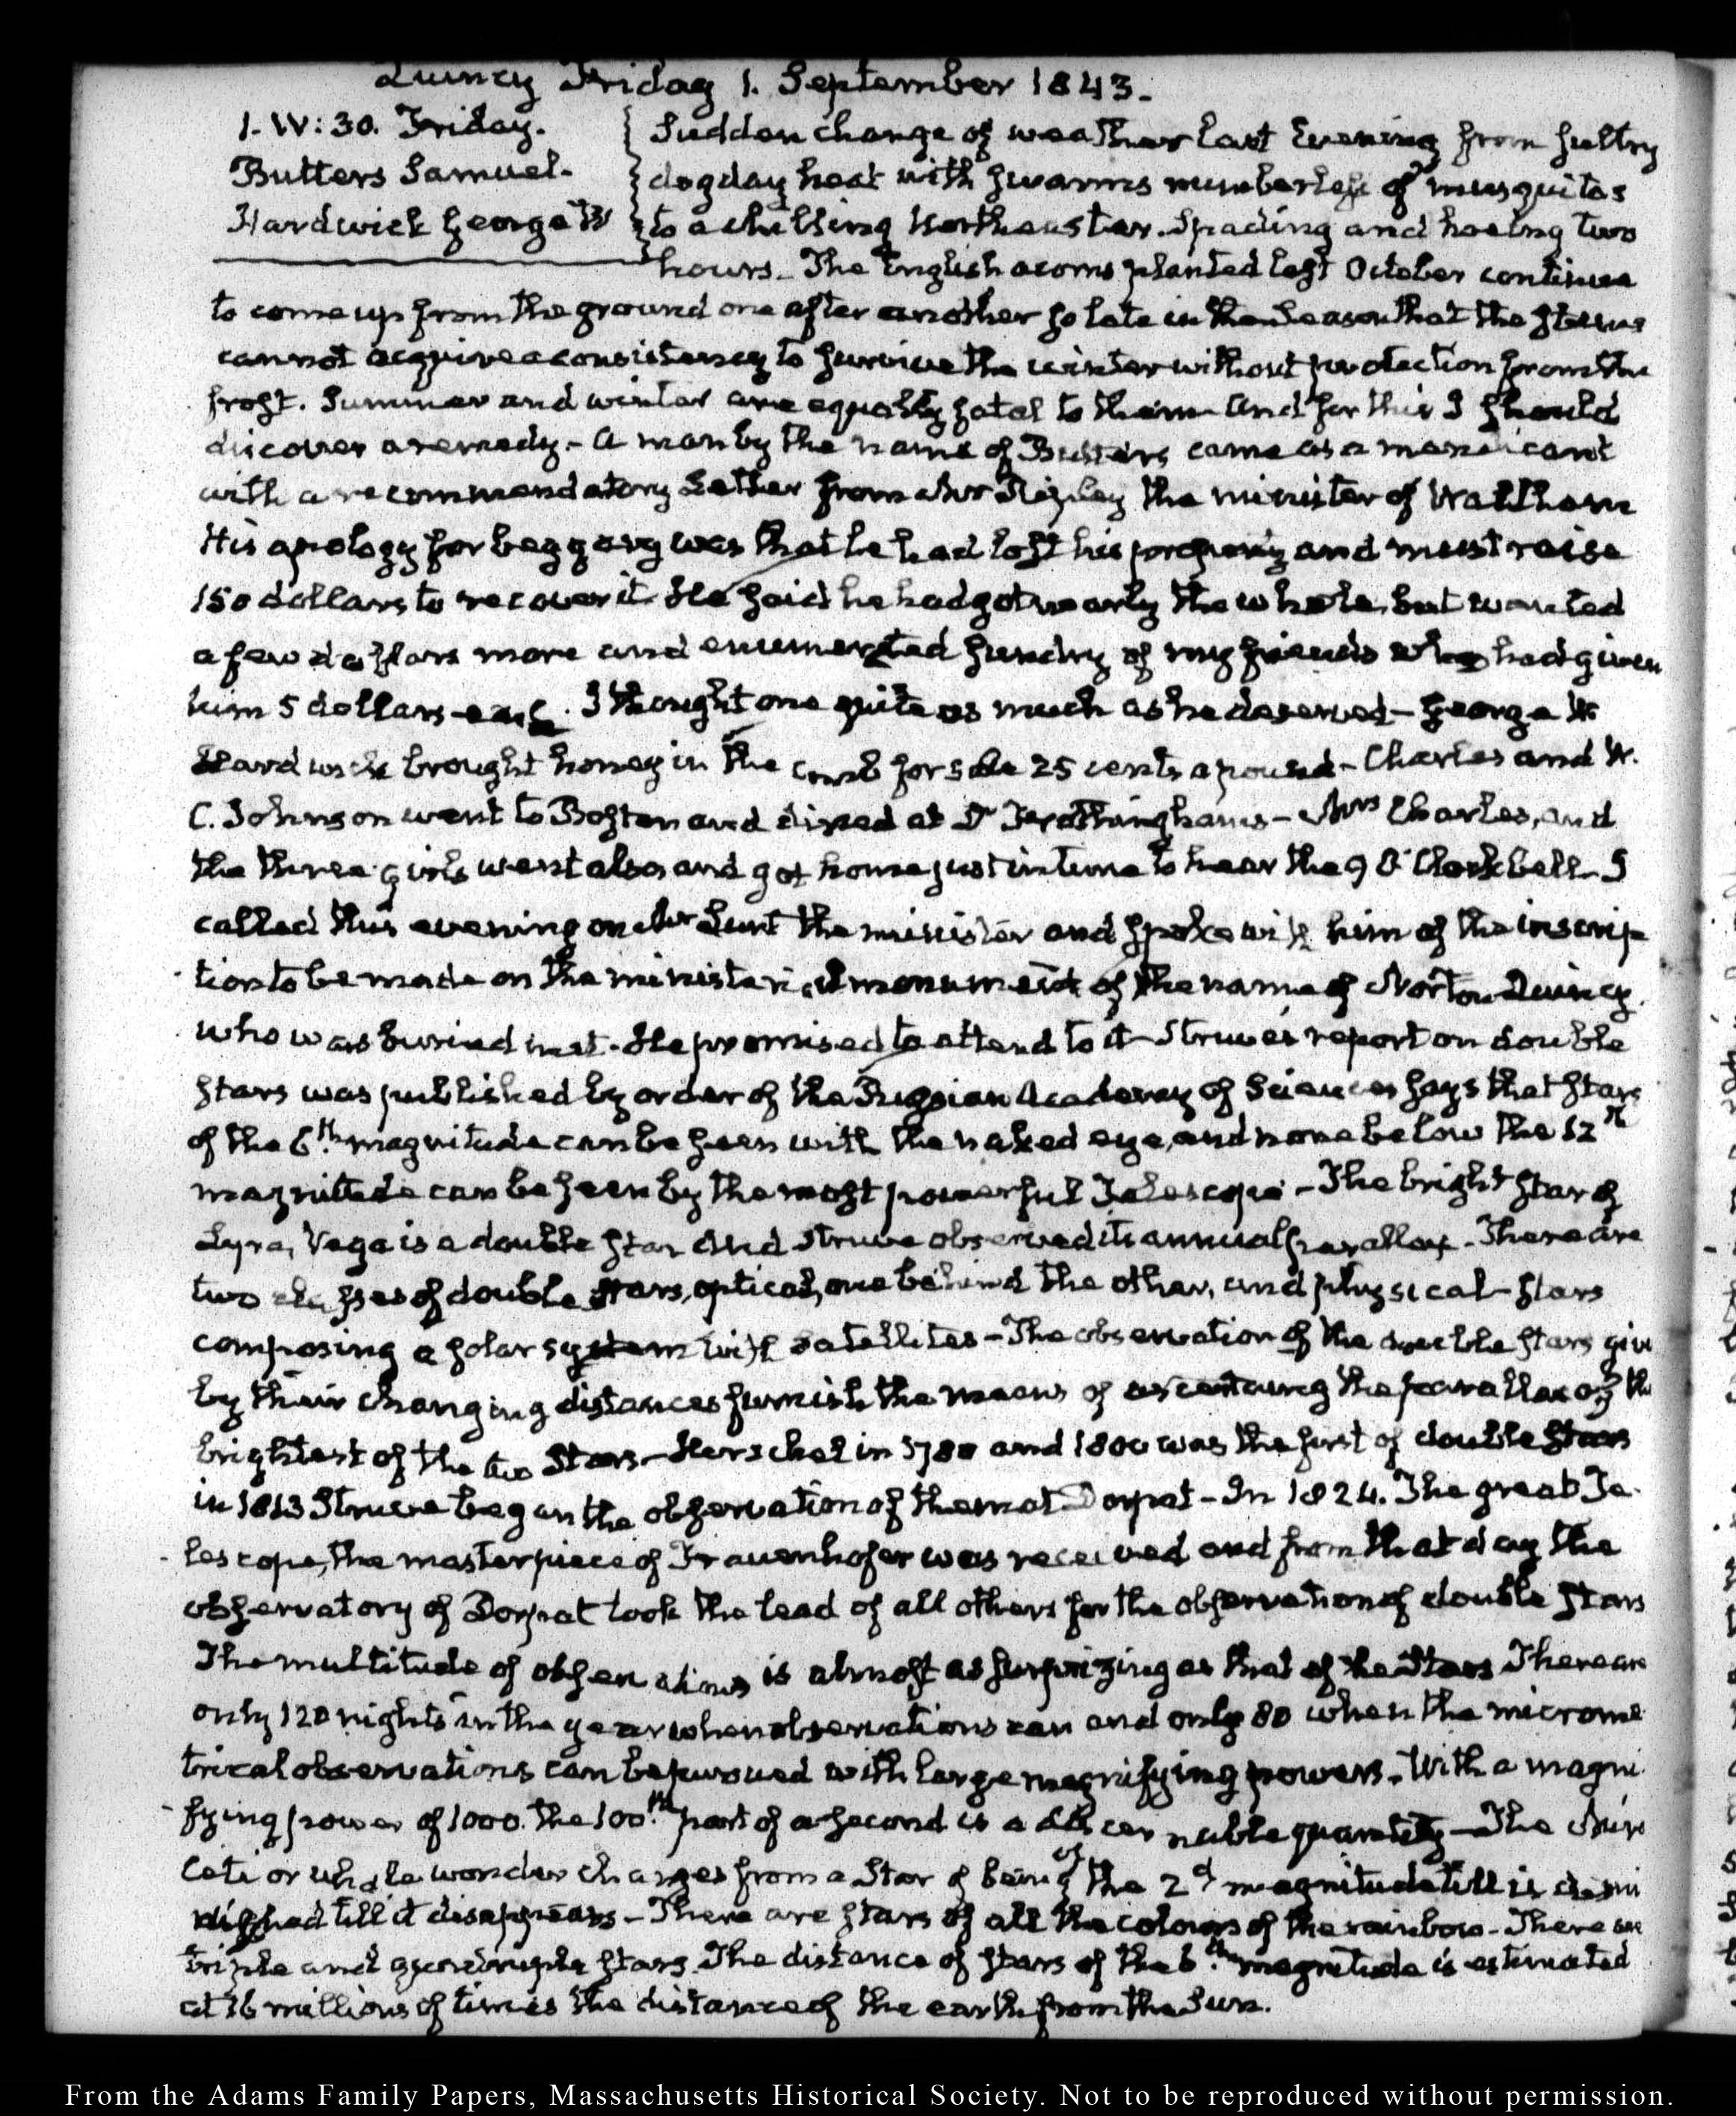 Quincy Friday 1. September 1843.
1. IV:30. Friday.
Butters Samuel.
Hardwick George W
Sudden change of weather last Evening from sultry
dogday heat with swarms numberless of musquitos
to a chilling Northeaster. Spading and hoeing two
hours. The English acorns planted last October continue
to come up from the ground one after another so late in the Season that the stems
cannot acquire a consistency to survive the winter without protection from the
frost. Summer and winter are equally fatal to them and for this I should
discover a remedy. - A man by the name of Butters came as a mendicant
with a recommendatory Letter from Mr Ripley the minister of Waltham
His apology for beggary was that he had lost his property and must raise
150 dollars to recover it. He said he had got nearly the whole, but wanted
a few dollars more and enumerated sundry of my friends who had given
him 5 dollars each. I thought one quite as much as he deserved - George W
Hardwick brought honey in the comb for sale 25 cents a pound - Charles and W.
C. Johnson went to Boston and dined at Dr Frothingham's - Mrs Charles, and
the three girls went also, and got home just in time to hear the 9 O'Clock bell. I
called this evening on Mr Lunt the minister and spoke with him of the inscrip
tion to be made on the ministerial monument of the name of Norton Quincy
who was buried in it. He promised to attend to it - Struve's report on double
Stars was published by order of the Russian Academy of Sciences says that stars
of the 6th. magnitude can be seen with the naked eye, and none below the 12th
magnitude can be seen by the most powerful Telescope - The bright star of
Lyra, Vega is a double star and Struve observed its annual parallax - There are
two classes of double stars, optical, one behind the other, and physical - stars
composing a solar system with satellites - The observation of the double stars give
by their changing distances furnish the means of the parallax of the
brightest of the two Stars - Herschel in 1780 and 1800 was the first of double Stars
in 1813 Struve began the observation of them at Dorpat - In 1824. The great Te
lescope, the masterpiece of Frauenhofer was received and from that day the
observatory of Dorpat took the lead of all others for the observation of double stars
The multitude of observations is almost as surprizing as that of the Stars There are
only 120 nights in the year when observations can and only 80 when the microme
trical observations can be pursued with large magnifying powers. With a magni
fying power of 1000. the 100.th part of a second is a discernable quantity - The Mira
Ceti or whale wonder changes from a Star of being of the 2d magnitude till is dimi
nished till it disappears - There are stars of all the colours of the rainbow - There are
triple and quadruple stars. The distance of stars of the 6.th magnitude is estimated
at 76 millions of times the distance of the earth from the Sun.
From the Adams Family Papers, Massachusetts Historical Society. Not to be reproduced without permission.